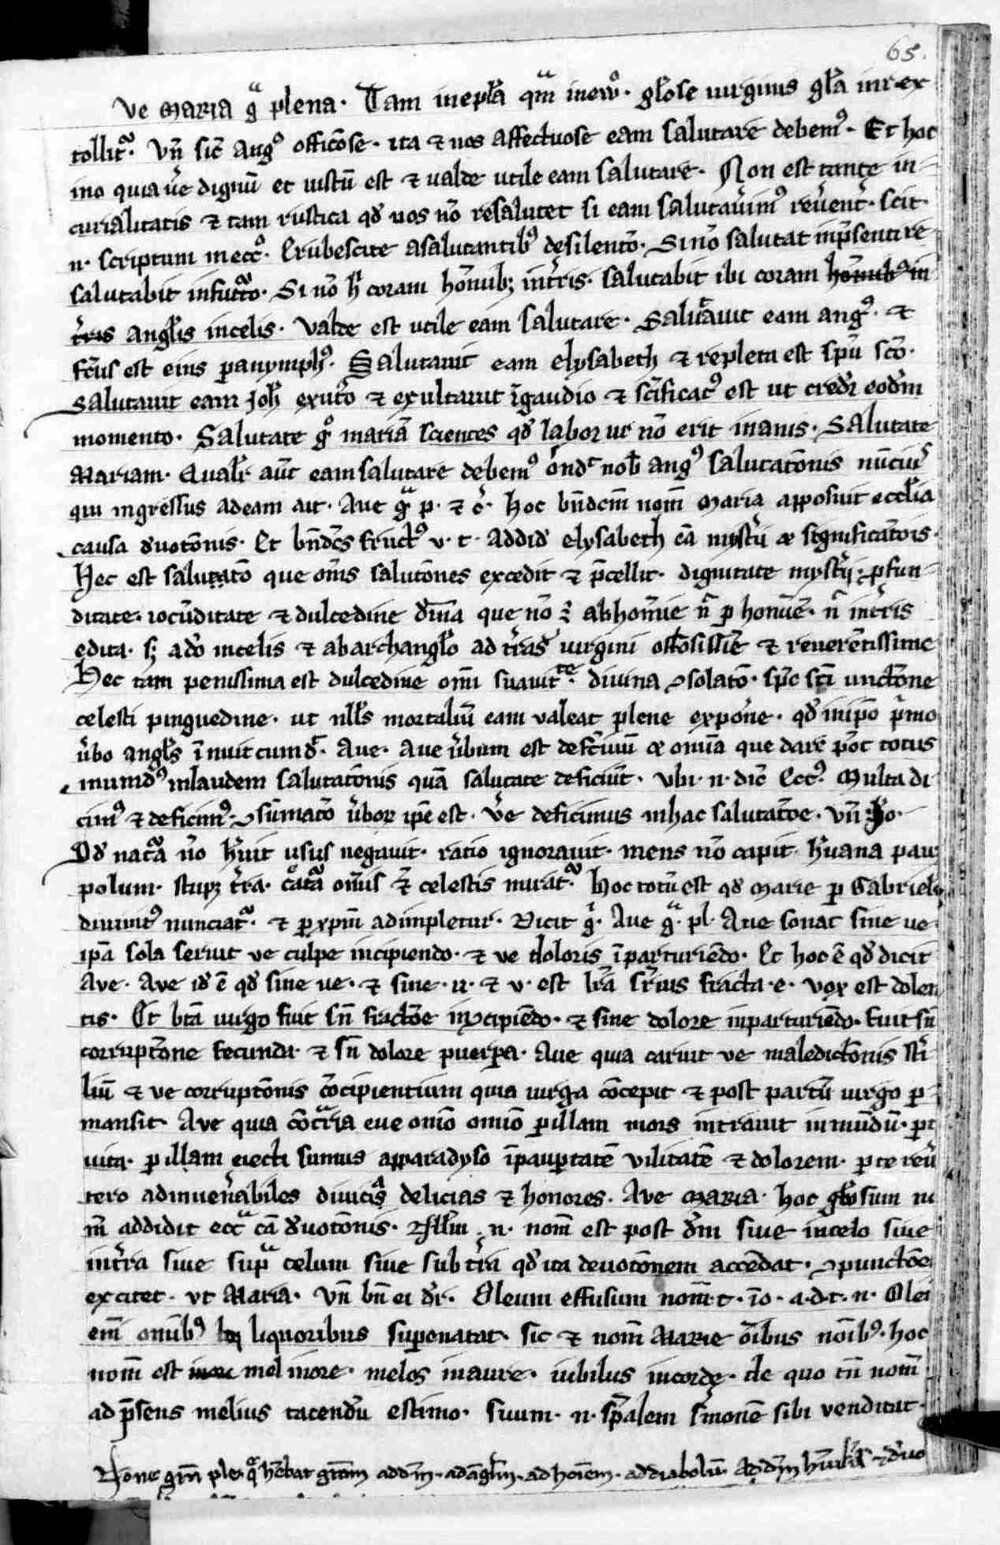 65.
ve maria gͣ plena. Tam in epl̄a qm̄ in ew̄o. gl̄ose uirginis gl̄a mr̄ ex
tollitᷣ. Vn̄ sic̄ augꝰ officōse. ita ⁊ nos affectuose eam salutare debemꝰ. Et hoc
ino quia ue̾ dignū et iustū est ⁊ ualde utile eam salutare. Non est tante in-
curialitatis ⁊ tam rustica qd̾ uos nō resalutet si eam salutau̾imꝰ reu̾ent̾. scit
.n. scriptum in ecc̄o. Erubescite a salutantibꝰ de silentō. Si nō salutat in p̄senti re
salutabit in futᷓo. Si nō h̄ coram hoīnibꝫ in t̾ris. salutabit ibi coram ho̅nibꝰ in
t̾ris angl̄is in celis. Valde est utile eam salutare. Salutauit eam angꝰ. ⁊
fc̄us est eius paranymphꝰ. Salutauit eam elysabeth ⁊ repleta est spū sc̄o.
Salutauit eam joh̄ ex ut̾o ⁊ exultauit ī gaudio ⁊ sc̄ificatꝰ est ut credit̾ eod̄m
momento. Salutate gͦ mariā scientes qd̾ labor ur̄ nō erit inanis. Salutate
Mariam. Qualit̾ aut̄ eam salutare debemꝰ on̄dit nob̄ angꝰ salutatōnis nūciuꝰ
qui ingressus ad eam ait. Aue gͣ p. ⁊ c̾. Hoc bn̄dcm̄ nom̄ Maria apposuit eccl̄ia
causa d̾uotōnis. Et bn̄dcs̄ fructꝰ u. t. addid̾ elysabeth cā myst̾ii et significatōnis.
Hec est salutatō que om̄s salutōnes excedit ⁊ p̄cellit. dignitate myst̾ij. ꝓfun-
ditate. iocūditate ⁊ dulcedine diuīa que nō ē ab homīe n̄ ꝑ homīē. n̄ in t̾ris
edita. sꝫ a dō in celis ⁊ ab archangl̄o ad t̾ras uirgini offic̄osissīe ⁊ reuerētissime
Hec tam plenissima est dulcedine om̄i suauitᵗᵉ. diuina ꝯsolatō. spc̄ sc̄i unctōne
celesti pinguedine. ut nll̄s mortaliū eam ualeat plene expon̾e. qd̾ in ip̄o p̄mo
u̾bo angl̄s īnuit cum d̾r. Aue. Aue u̾bum est defc̄iuū et om̄ia que dare pōt totus
mundꝰ in laudem salutatōnis quā salutate deficiūt. Vbi .n. dic̄ Eccꝰ. Multa di
cimꝰ ⁊ deficimꝰ. ꝯsūmatō u̾borꝝ ip̄e est. Ve̾ deficimus in hac salutatōe. Vn̄ Jo.
Qd̾ natᷓa nō h̾uit usus negauit. ratio ignorauit. mens nō capit h̾umana pau
polum. stupꝫ t̾ra. cᷓatᷓa om̄is ⁊ celestis miratᷣ. Hoc totū est qd̾ Marie ꝑ Gabriel̄
diuinitꝰ nunciatᷣ. ⁊ ꝑ xpm̄ adimpletur. Dicit gͦ. Aue gͣ. pl̾. Aue sonat sine ue.
ip̄a sola seruit ue culpe in cipiendo. ⁊ ue doloris ī parturiēdo. Et hoc ē qd̾ dicit
Aue. Aue id̾ ē qd̾ sine ue. ⁊ sine .u. ⁊ u. est l̄ra s̾rius fracta .e. vox est dolen
tis. Et bt̄a uirgo fuit sn̄ fractōe in ꝯcipiēdo. ⁊ sine dolore in parturiēdo. Fuit sn̄
corruptōne fecunda ⁊ sn̄ dolore puerpa. Aue quia caruit ue maledictōnis st̾i
liū ⁊ ue corruptōnis cōcipientium quia uirgo cōcepit ⁊ post partū uirgo ꝑ-
mansit. Aue quia cōtᷓria eue om̄o om̄io ꝑ illam mors intrauit in mūdū. ꝑ t̾
uita. ꝑ illam eiecti sumus a paradyso ī paup̾tatē uilitatē ⁊ dolorem. ꝑ te reu̾
tero ad inuen̾abiles diuicias delicias ⁊ honores. Ave maria. Hoc gl̄osum n
m̄ addidit eccᷓ cā d̾uotōnis. Null̄m .n. nom̄ est post dm̄ siue in celo siue
in t̾ra siue supᷓ celum siue sub t̾ra qd̾ ita deuotōnem accēdat. ꝯpunctōe
excitet. ut Maria. Vn̄ bn̄ ei dr̄. Oleum effusum nom̄ t. io. a.d.t.n. Olei
em̄ om̄ibꝰ liquoribus supenatat. sic ⁊ nom̄ Marie oībus noībꝰ. hoc
nom̄ est mel in ore. melos in aure. iubilus in corde. de quo tn̄ nom̄
ad p̄sens melius tacendū estimo. suum .n. spālem s̾monē sibi uenditat.
None gr̄m ple. qͣ hēbat grām ad dm̄. ad angl̄m. ad hoīem. ad diabolū. Ad dm̄ hūil̄ ⁊ d̾uo